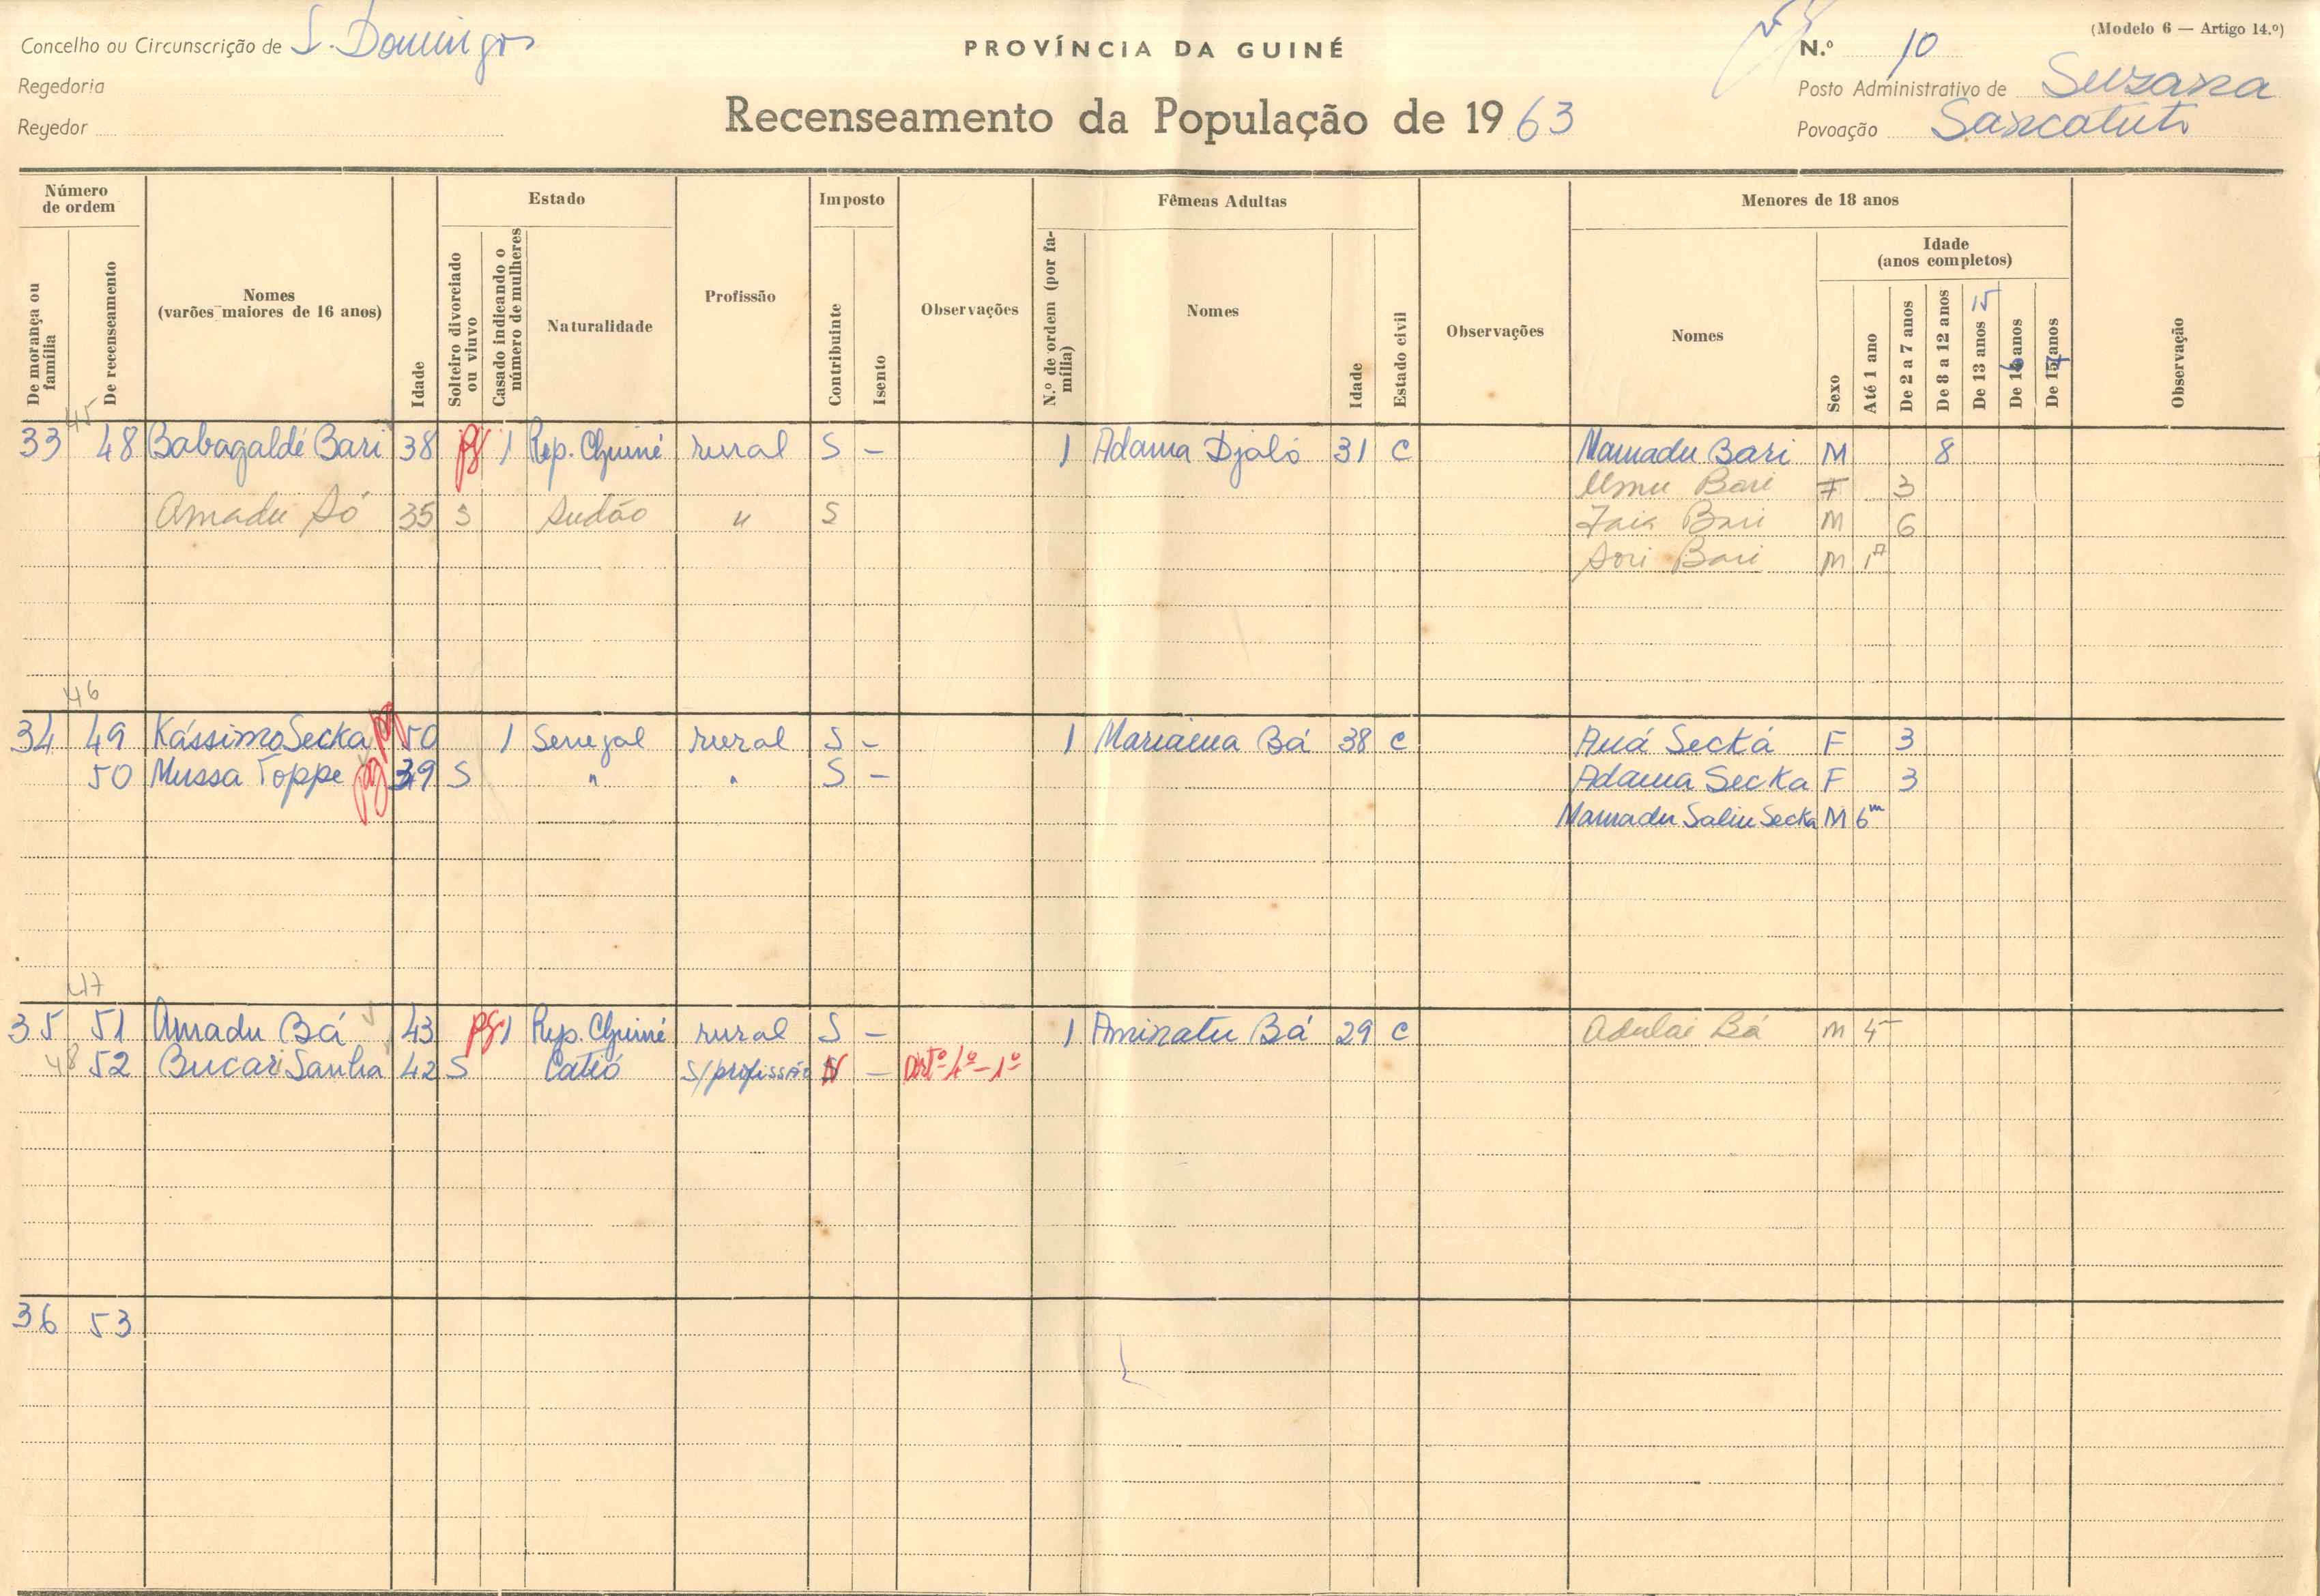 Concelho ou Circunscrição de S. Domingos
Regedoria
Regedor
PROVÍNCIA DA GUINÉ
Recenseamento da População de 1963
(Modelo 6 — Artigo 14.º)
N.º 10
Posto Administrativo de Suzana
Povoação Sancatuto
Número de ordem
De morança ou família
De recenseamento
Nomes (varões maiores de 16 anos)
Idade
Estado
Solteiro divorciado ou viuvo
Casado indicando o número de mulheres
Naturalidade
Profissão
Imposto
Contribuinte
Isento
Observações
Fêmeas Adultas
N.º de ordem (por família)
Nomes
Idade
Estado civil
Observações
Menores de 18 anos
Nomes
Sexo
Idade (anos completos)
Até 1 ano
De 2 a 7 anos
De 8 a 12 anos
De 13 anos 15
De 16 anos
De 17 anos
Observação
45
33 48 Babagaldé Bari 38 pg 1 Rep. Guiné rural S - 1 Adama Djaló 31 C Mamadu Bari M 8
Umu Bari F 3
Amadu Só 35 S Sudão " S Jaia Bari M 6
Sori Bari M 1
46
34 49 Kássimo Secka pg 50 1 Senegal rural S - 1 Mariama Bá 38 C Auá Secká F 3
50 Mussa Toppe pg 39 S " " S - Adama Secka F 3
Mamadu Saliu Secka M 6m
47
35 51 Amadu Bá 43 pg 1 Rep. Guiné rural S - 1 Aminatu Bá 29 C Adulai Bá M 4
48 52 Bucari Sanha 42 S Catió S/profissão N -
36 53